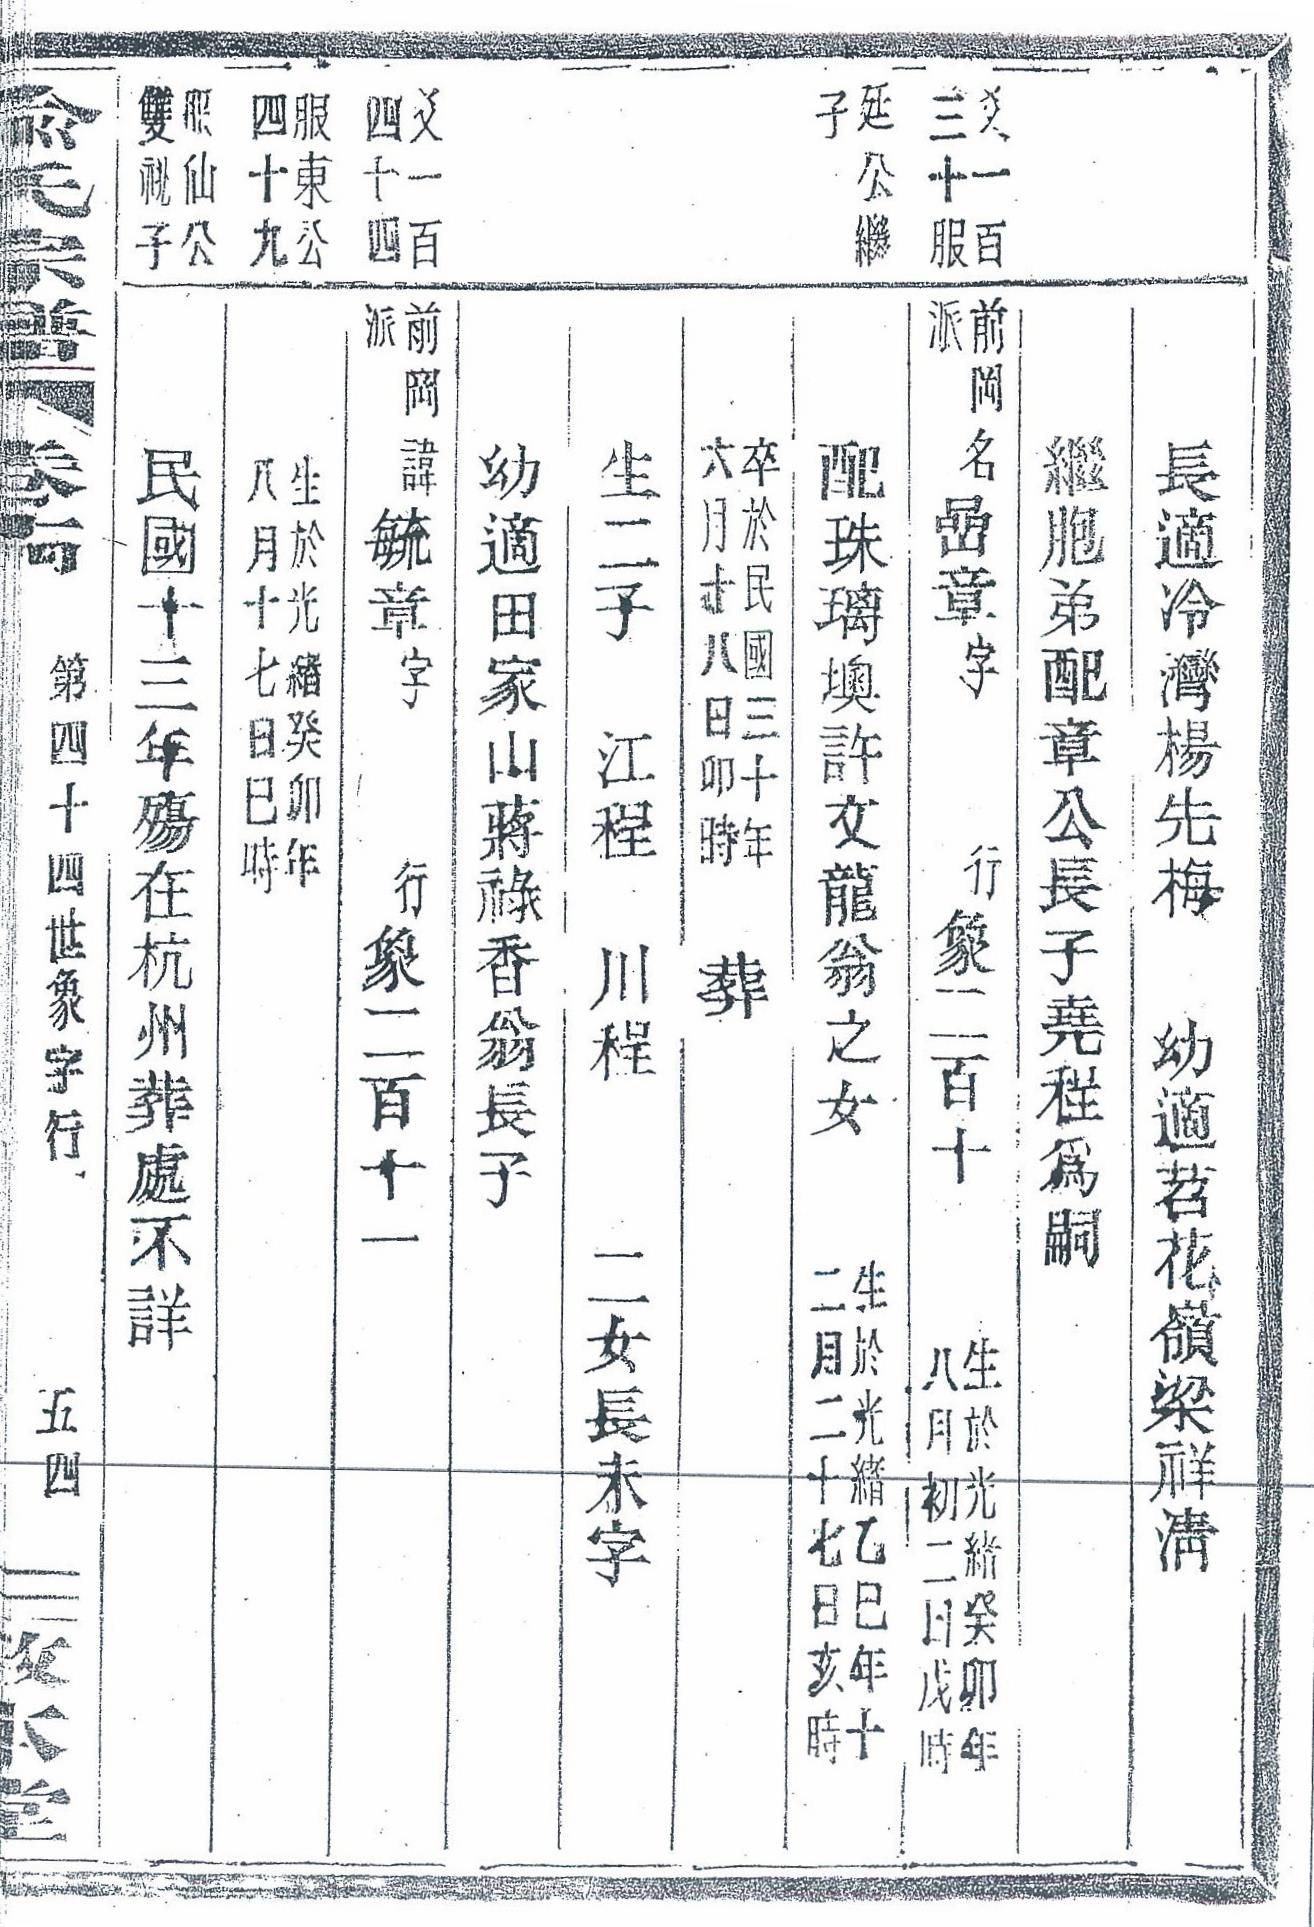 長適冷灣楊先梅　幼適苕花嶺梁祥淸
繼胞弟配章公長子堯程爲嗣
爻一百
三十服
前岡
派
名嵒章字　行象二百十
生於光緒癸卯年
八月初二日戌時
延公繼
子
配珠璃墺許文龍翁之女
生於光緒乙巳年十
二月二十七日亥時
卒於民國三十年
六月十八日卯時
葬
生二子　江程　川程　二女長未字
幼適田家山蔣祿香翁長子
爻一百
四十四
前岡
派
諱毓章字　行象二百十一
服東公
四十九
生於光緒癸卯年
八月十七日巳時
服仙公
雙祧子
民國十三年殤在杭州葬處不詳
宗譜
第四十四世象字行
五四
本堂